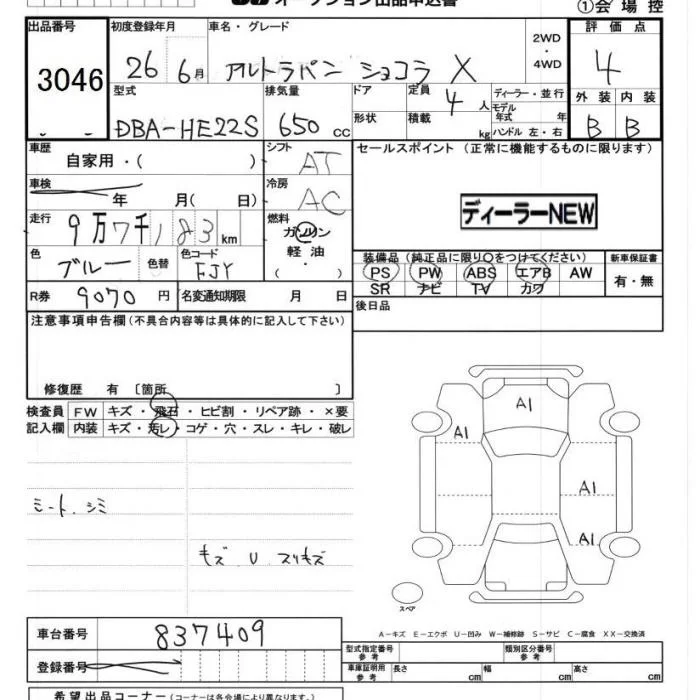 オークション出品申込書
①会場控
出品番号 初度登録年月 車名・グレード 2WD・4WD 評価点
3046 26年6月 アルトラパン ショコラ X 4
型式 排気量 ドア 定員 4人 ディーラー・並行 外装 内装
DBA-HE22S 650cc 形状 積載 kg モデル年式 年 ハンドル 左・右 B B
車歴 自家用・( ) シフト AT セールスポイント (正常に機能するものに限ります)
車検 年 月( 日) 冷房 AC
ディーラーNEW
走行 9万7千183km 燃料 ガソリン 軽油 ( ・ )
色 ブルー 色替 色コード FJY 装備品 (純正品に限り〇をつけてください) 新車保証書
PS PW ABS エアB AW 有・無
SR ナビ TV カワ
R券 9070円 名変通知期限 月 日 後日品
注意事項申告欄 (不具合内容等は具体的に記入して下さい)
修復歴 有 〔箇所 〕
検査員記入欄 FW キズ・飛石・ヒビ割・リペア跡・×要
内装 キズ・汚レ・コゲ・穴・スレ・キレ・破レ
A1
A1
シート.シミ
A1
A1
キズ U スリキズ
スペア
A-キズ E-エクボ U-凹み W-補修跡 S-サビ C-腐食 XX-交換済
車台番号 837409
型式指定番号 参考 類別区分番号 参考
登録番号
車庫証明用 参考 長さ cm 幅 cm 高さ cm
希望出品コーナー (コーナーは各会場により異なります)